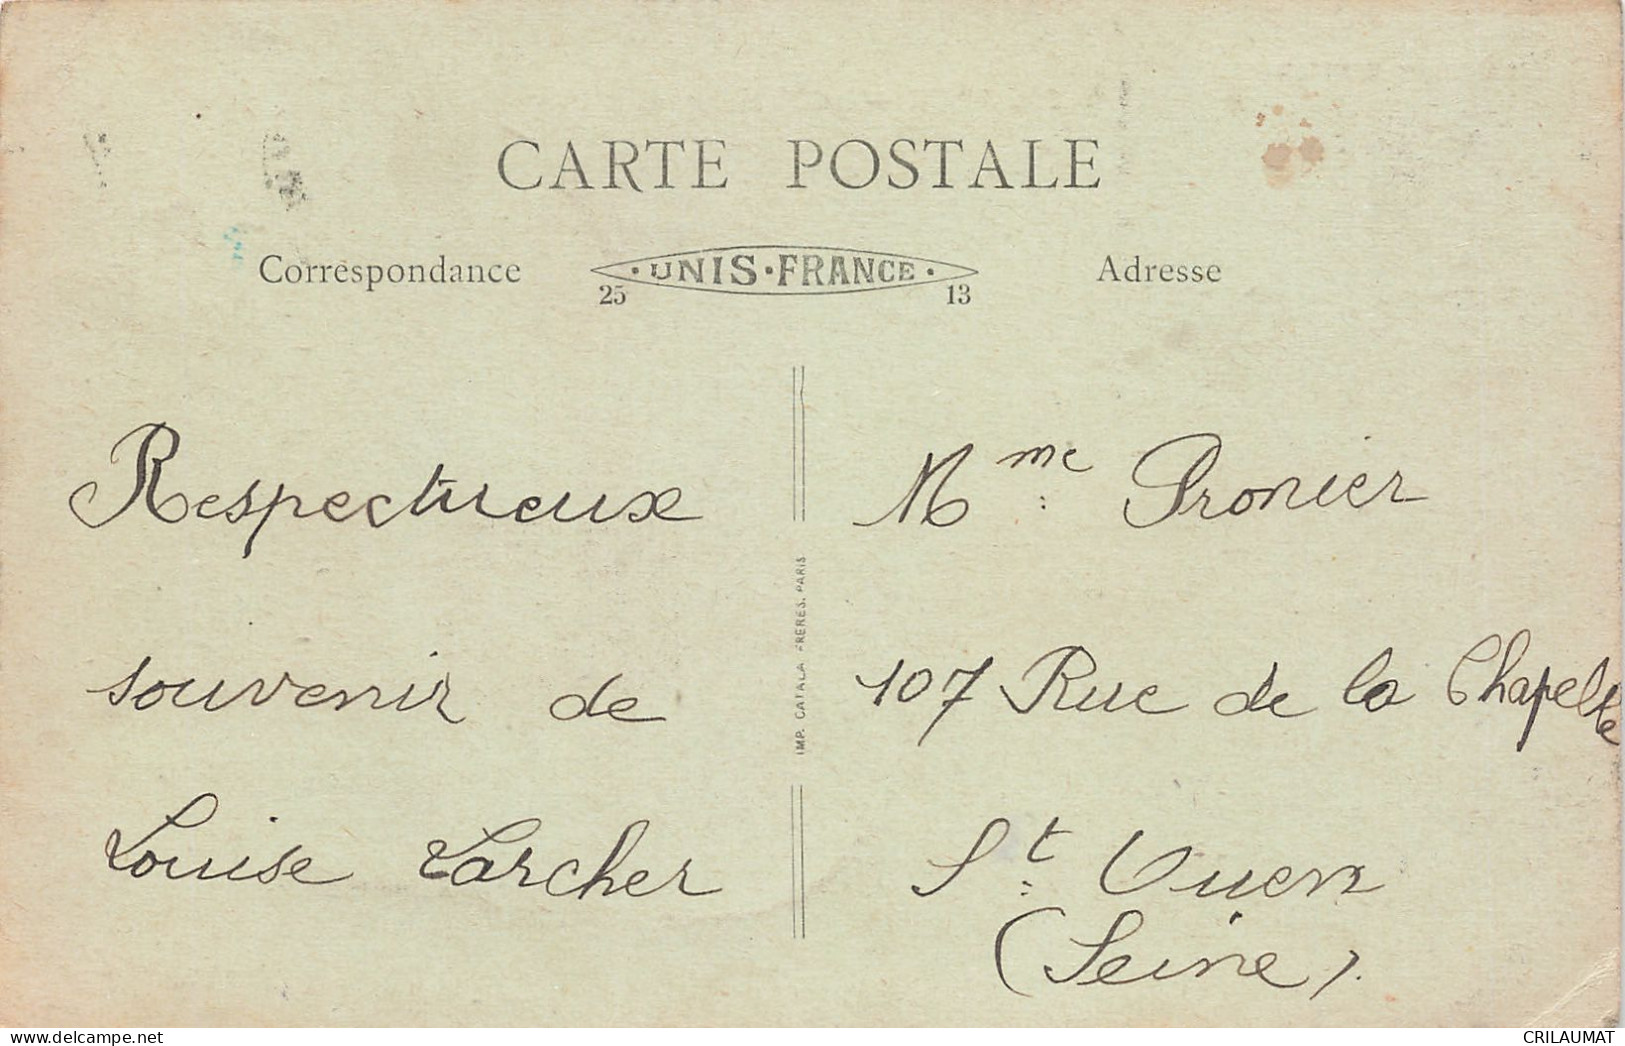 CARTE POSTALE
Correspondance
UNIS-FRANCE
25 13
Adresse
Respectueux
souvenir de
Louise Larcher
IMP. CATALA FRERES. PARIS
Mme Pronier
107 Rue de la Chapelle
St Ouen
(Seine).
delcampe.net
CRILAUMAT